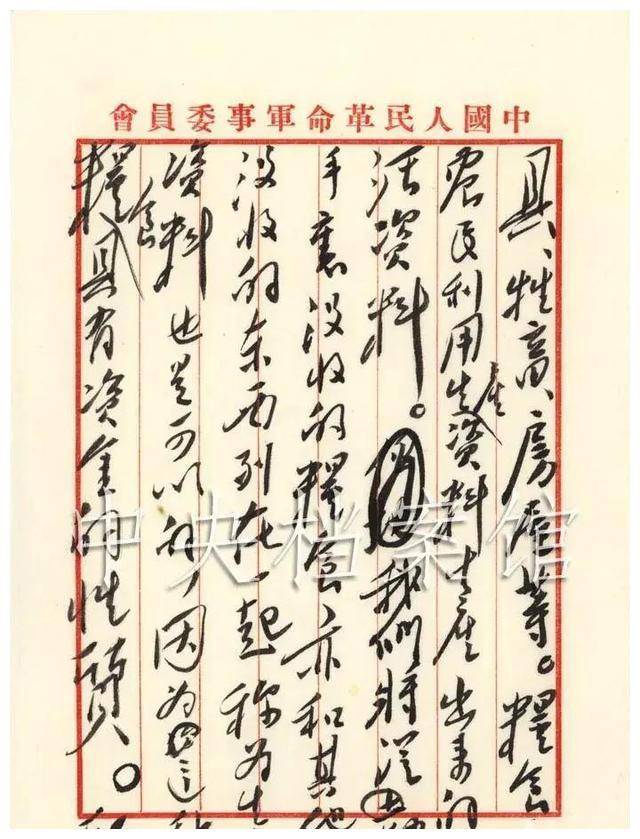 中國人民革命軍事委員會
具、牲畜、房屋等。糧食
農民利用生產資料生產出來的
活資料。我們將從地
手裏沒收的糧食,亦和其他
沒收的東西列在一起稱為生
資料也是可以的,因為這
糧食具有資金的性質。
中央档案馆